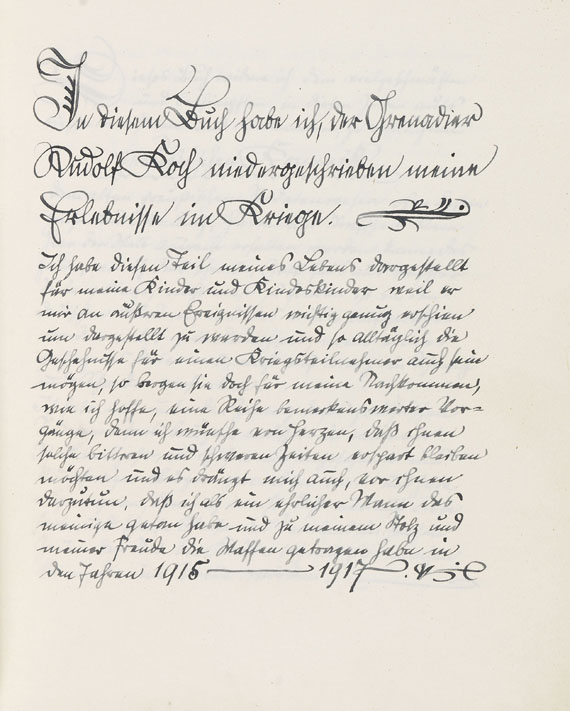 In diesem Buch habe ich, der Grenadier
Rudolf Koch niedergeschrieben meine
Erlebnisse im Kriege.
Ich habe diesen Teil meines Lebens dargestellt
für meine Kinder und Kindeskinder weil er
mir an äußren Ereignissen wichtig genug erschien
um dargestellt zu werden und so alltäglich die
Geschehnisse für einen Kriegsteilnehmer auch sein
mögen, so bergen sie doch für meine Nachkommen,
wie ich hoffe, eine Reihe bemerkenswerter Vor=
gänge, denn ich wünsche von Herzen, daß ihnen
solche bittren und schweren Zeiten erspart bleiben
möchten und es drängt mich auch, vor ihnen
darzutun, daß ich als ein ehrlicher Mann das
meinige getan habe und zu meinem Stolz und
meiner Freude die Waffen getragen habe in
den Jahren 1915 — 1917.